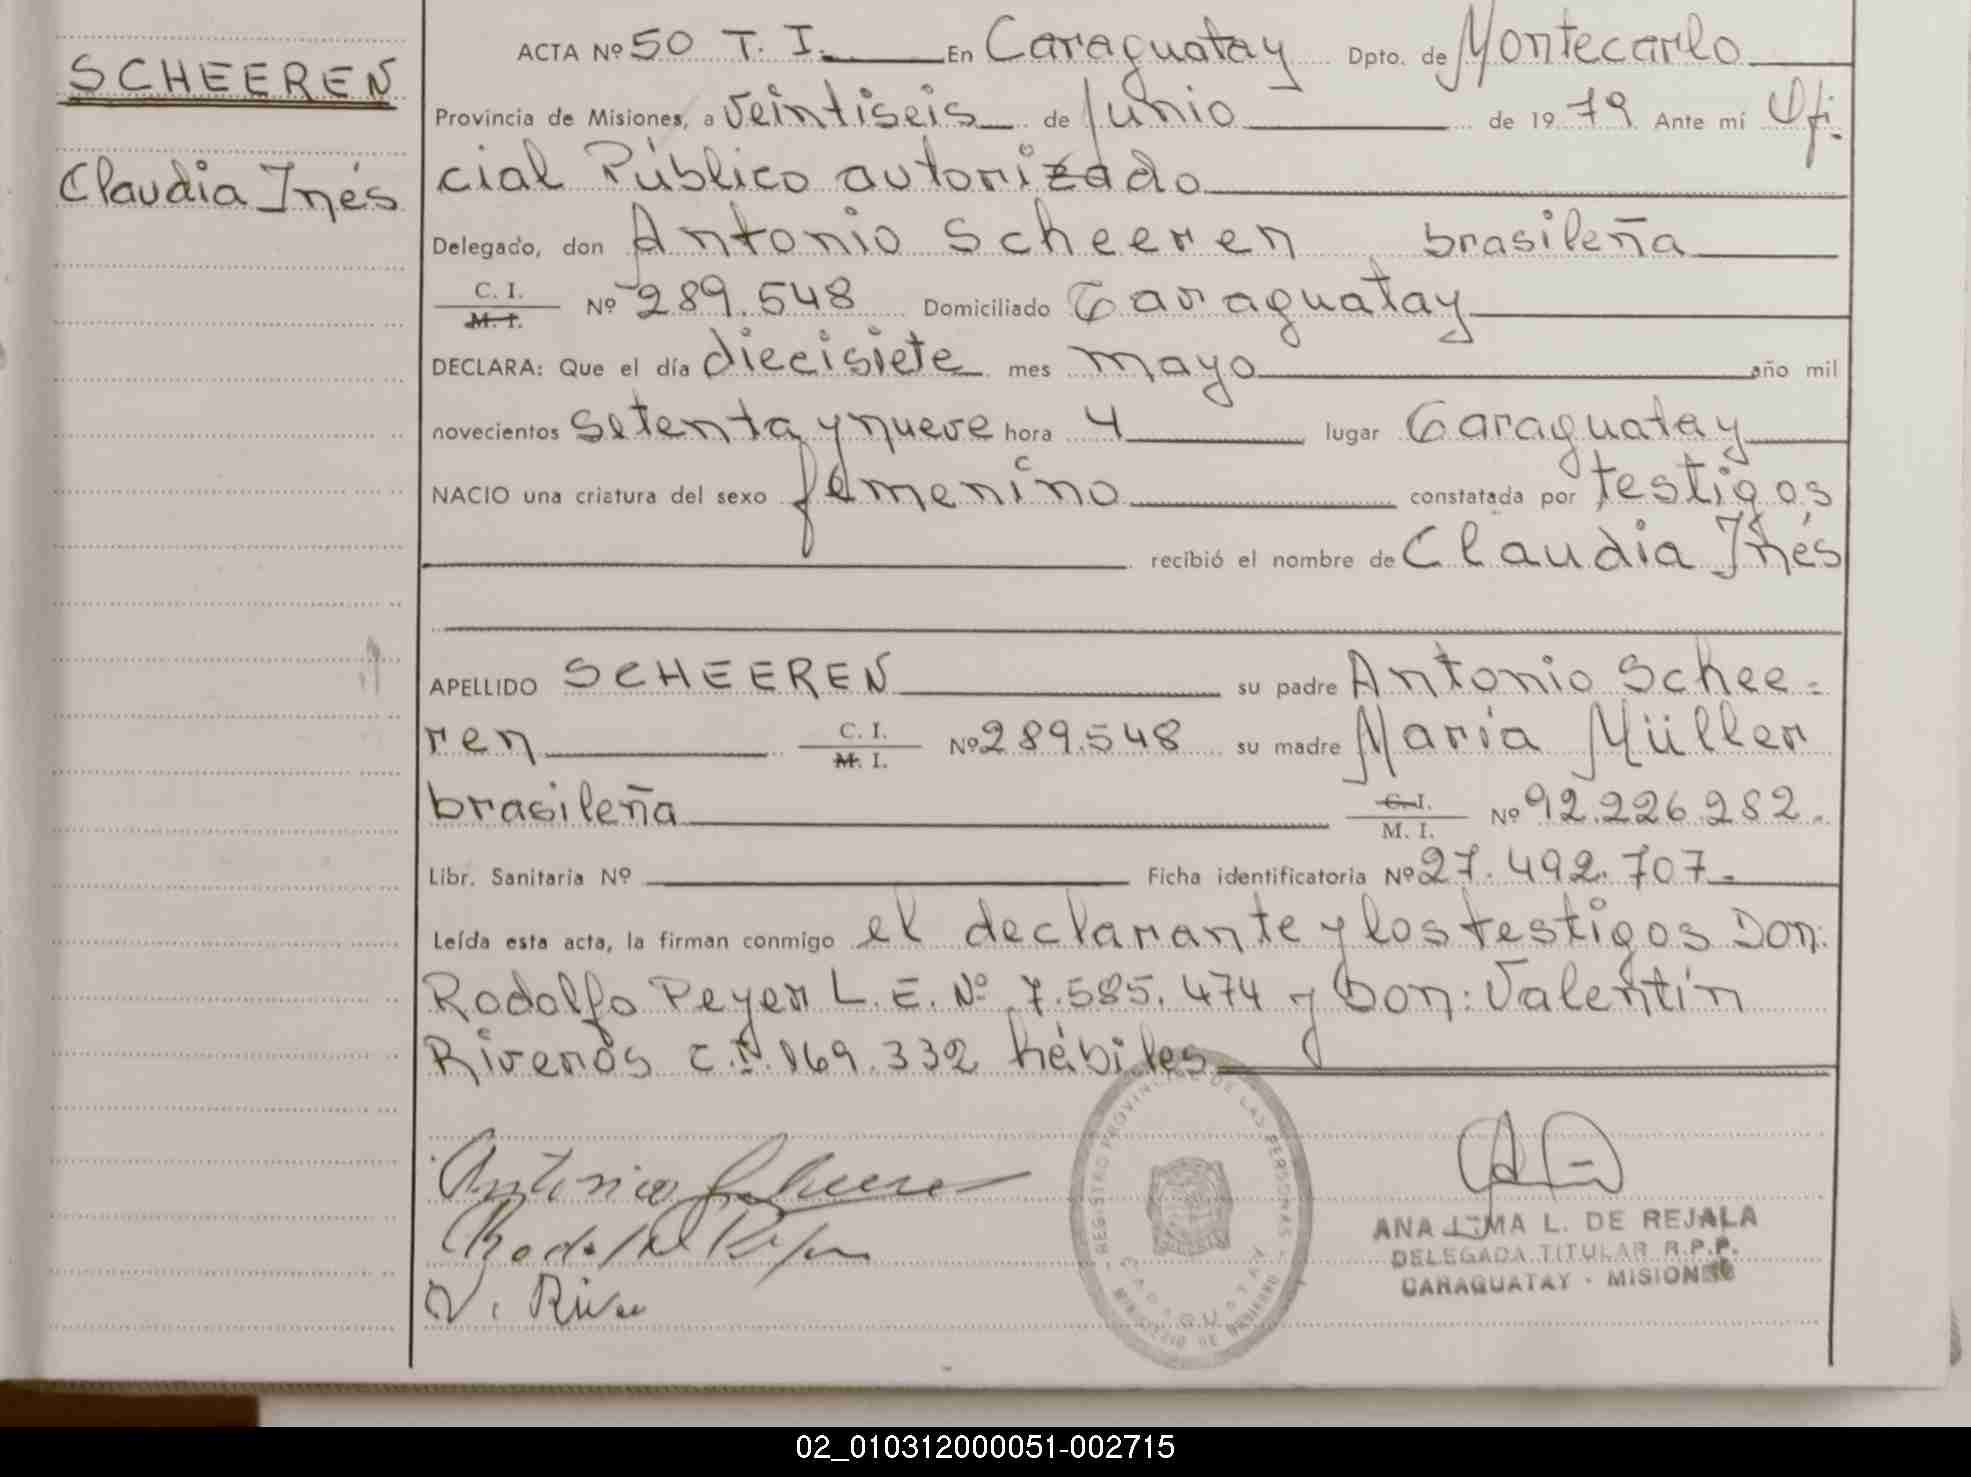 SCHEEREN
Claudia Inés
ACTA Nº 50 T. I. En Caraguatay Dpto. de Montecarlo
Provincia de Misiones, a veintiseis de Junio de 1979 Ante mí Ofi-
cial Público autorizado
Delegado, don Antonio Scheeren brasileña
C. I.
M. I. Nº 289.548 Domiciliado Caraguatay
DECLARA: Que el día diecisiete mes mayo año mil
novecientos setenta y nueve hora 4 lugar Caraguatay
NACIO una criatura del sexo femenino constatada por testigos
recibió el nombre de Claudia Inés
APELLIDO SCHEEREN su padre Antonio Schee=
ren C. I.
M. I. Nº 289.548 su madre María Müller
brasileña C. I.
M. I. Nº 92.226.282.
Libr. Sanitaria Nº Ficha identificatoria Nº 27.492.707.
Leída esta acta, la firman conmigo el declarante y los testigos Don:
Rodolfo Peyer L. E. Nº 7.585.474 y Don: Valentín
Riveros C.I. 169.332 hábiles
Antonio Scheeren
V. Rive
REGISTRO PROVINCIAL DE LAS PERSONAS
CARAGUATAY
MINISTERIO DE GOBIERNO
ANA IRMA L. DE REJALA
DELEGADA TITULAR R.P.P.
CARAGUATAY - MISIONES
02_010312000051-002715